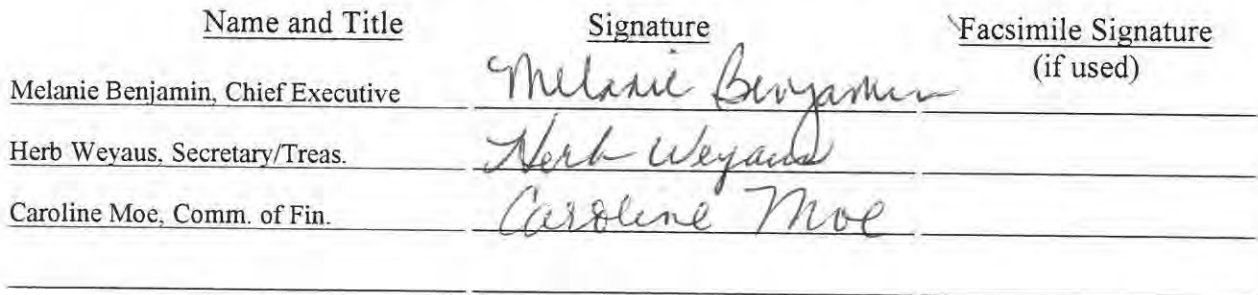 Name and Title Signature Facsimile Signature
(if used)
Melanie Benjamin, Chief Executive Melanie Benjamin
Herb Weyaus, Secretary/Treas. Herb Weyaus
Caroline Moe, Comm. of Fin. Caroline Moe